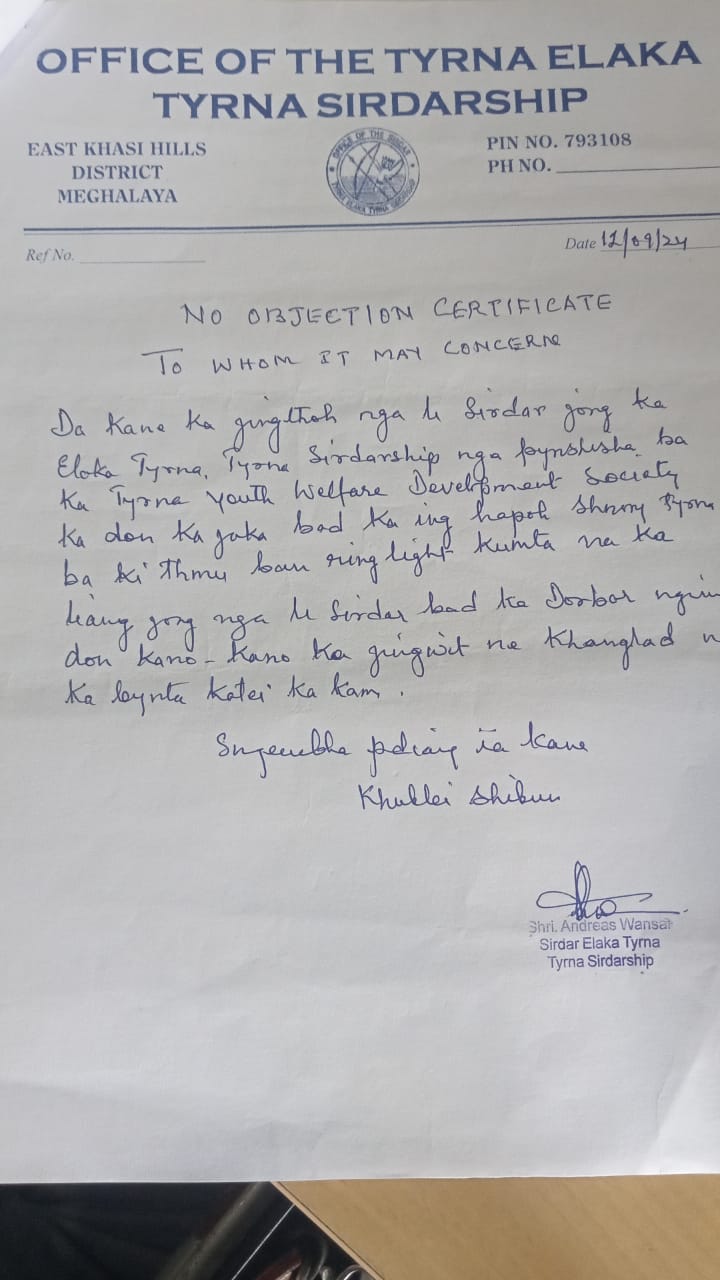 OFFICE OF THE TYRNA ELAKA
TYRNA SIRDARSHIP
EAST KHASI HILLS
DISTRICT
MEGHALAYA
OFFICE OF THE SIRDAR
TYRNA ELAKA TYRNA SIRDARSHIP
PIN NO. 793108
PH NO.
Ref No.
Date 12/09/24
NO OBJECTION CERTIFICATE
TO WHOM IT MAY CONCERN
Da Kane Ka jingthoh nga U Sirdar jong ka
Elaka Tyrna, Tyrna Sirdarship nga pynshisha ba
Ka Tyrna Youth Welfare Development Society
Ka don Ka jaka bad Ka ing hapoh Shnong Tyrna
ba ki thmu ban ring light Kumta na Ka
liang jong nga U Sirdar bad ka Dorbar ngim
don Kano-Kano Ka jingwit ne Khanglad
Ka bynta Katei Ka Kam.
Sngewbha pdiang ia kane
Khublei Shibun
Shri. Andreas Wansai
Sirdar Elaka Tyrna
Tyrna Sirdarship